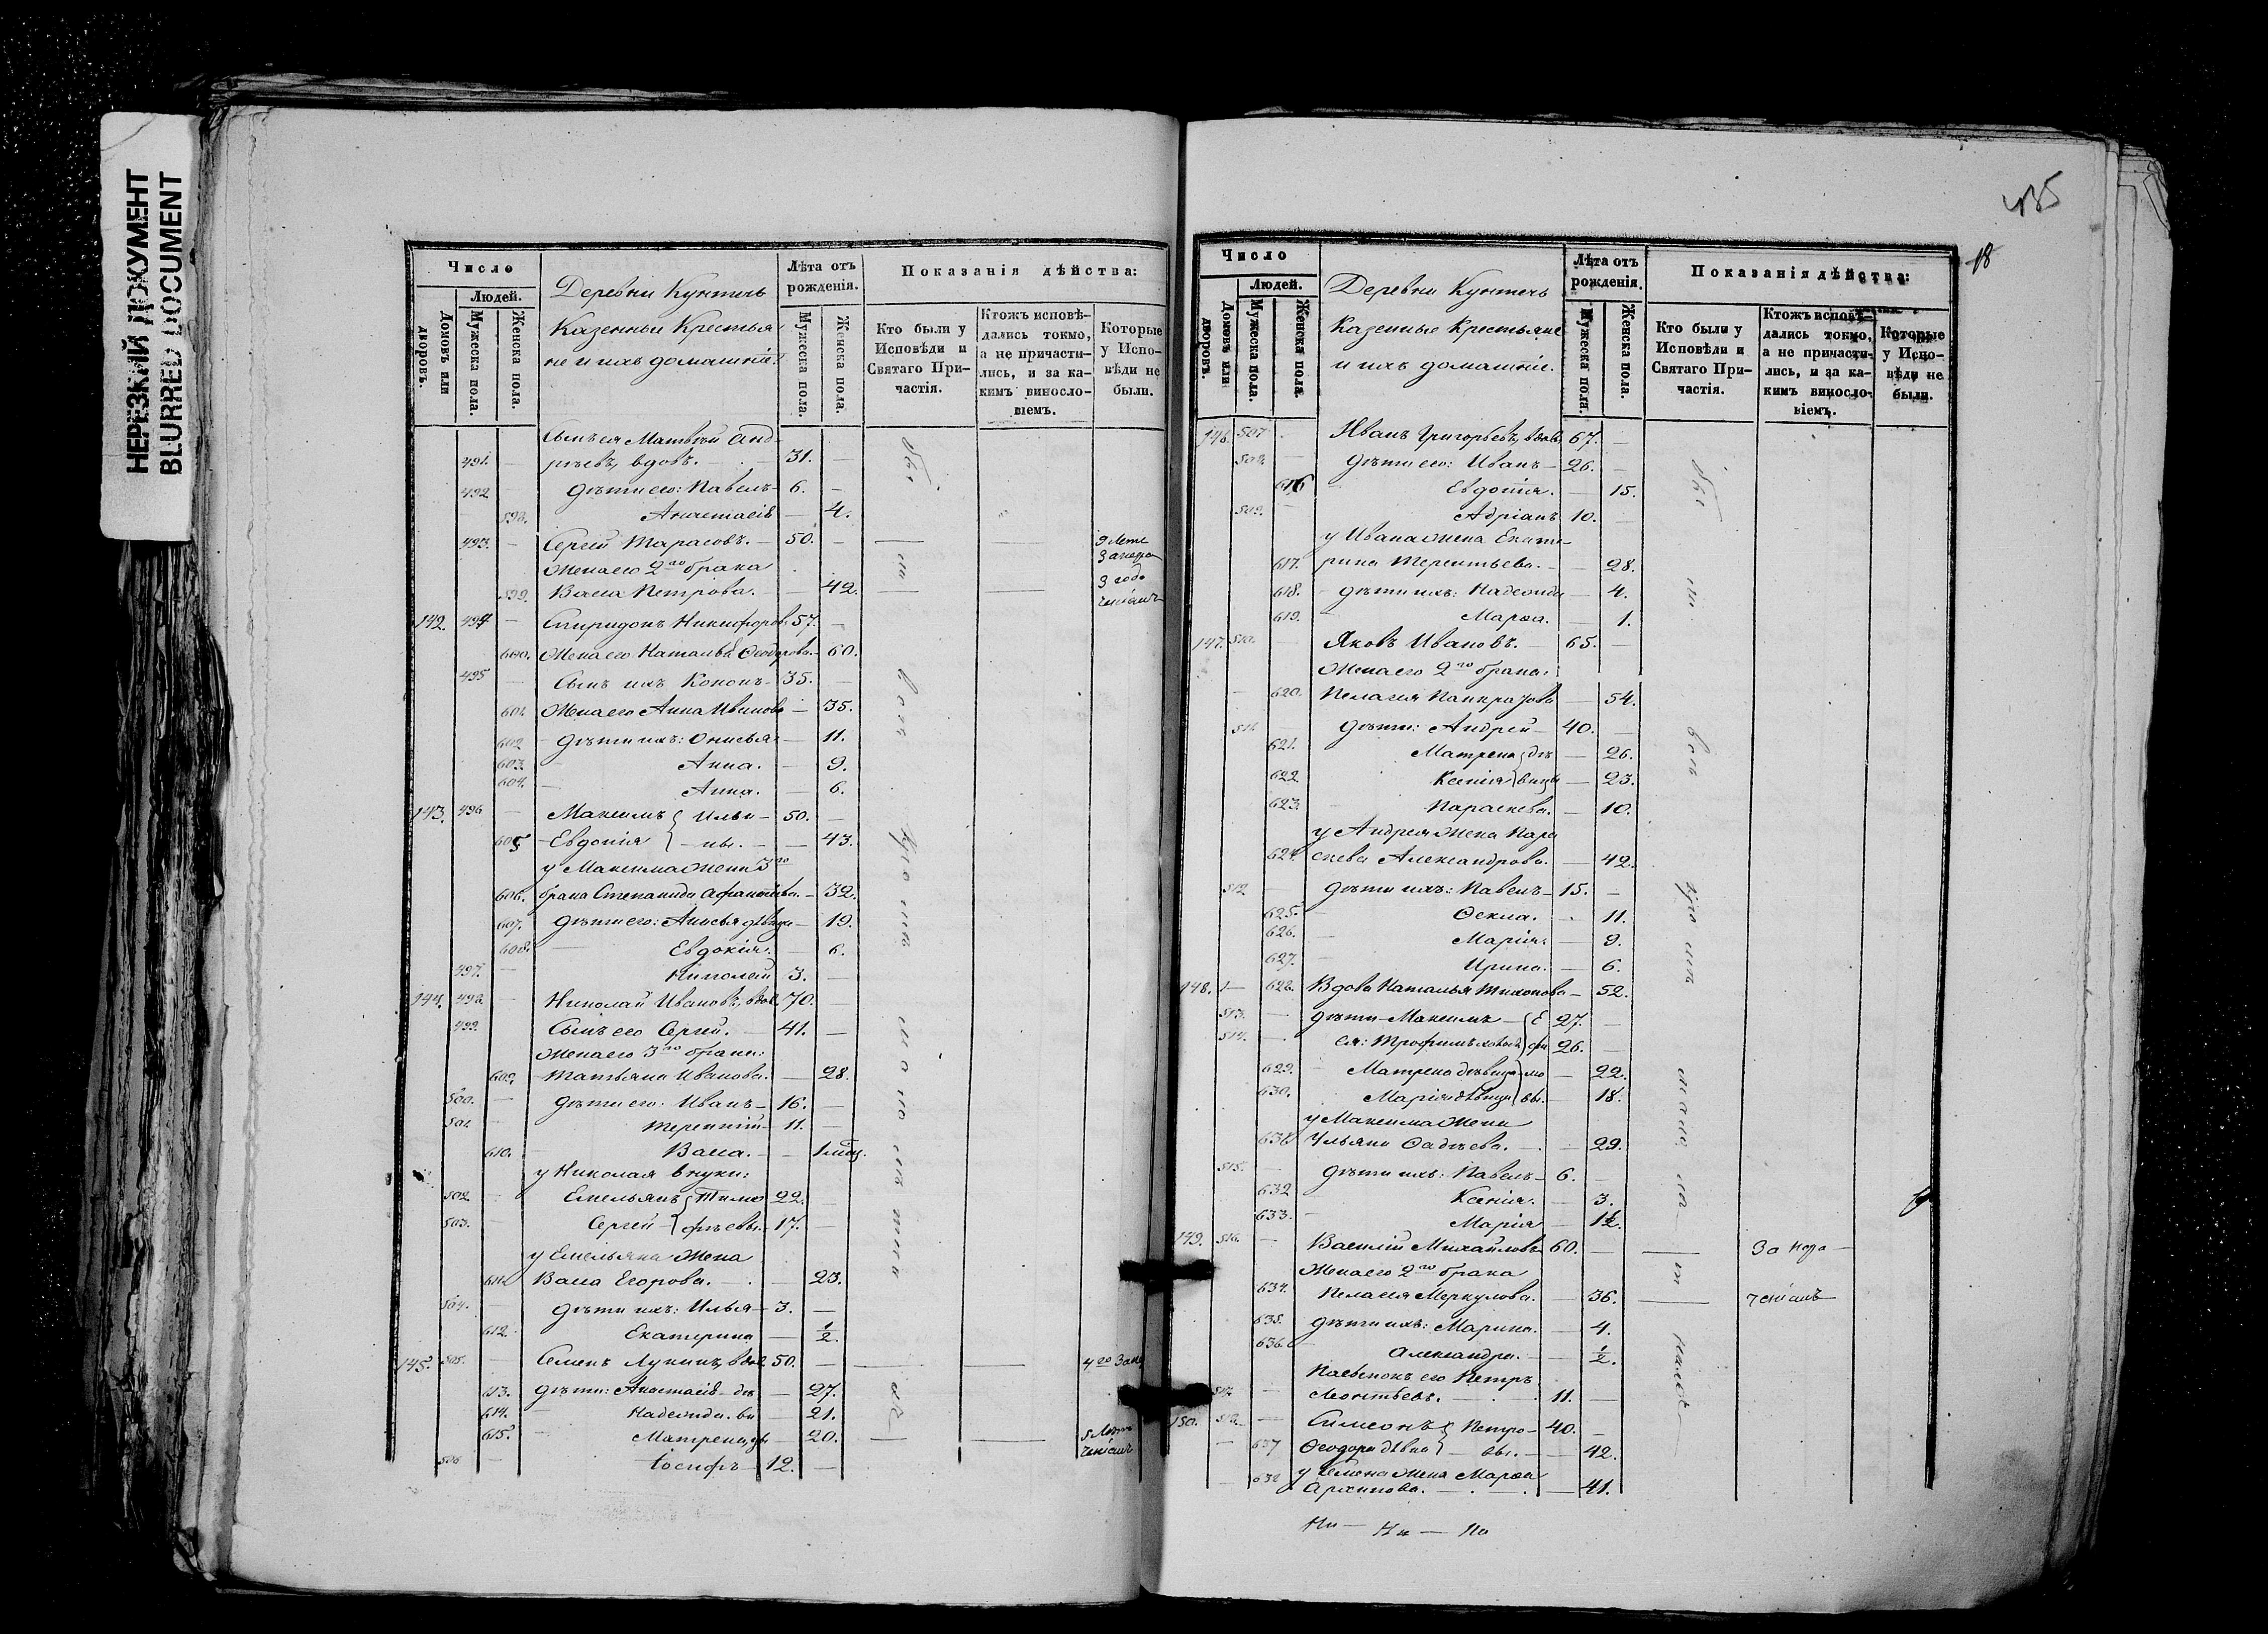 НЕРЕЗКИЙ ДОКУМЕНТ
BLURRED DOCUMENT
Число
Людей.
Домовъ или дворовъ.
Мужеска пола.
Женска пола.
Деревни Кунтечь
Казенные Крестья
не и ихъ домашніе.
Лѣта отъ рожденія.
Мужеска пола.
Женска пола.
Показанія дѣйства:
Кто были у Исповѣди и Святаго Причастія.
Ктожъ исповѣдались токмо, а не причастились, и за какимъ винословіемъ.
Которые у Исповѣди не были.
Сынъ ея Матвѣй Анд
491. — реевъ, вдовъ. — 31. —
492 — Дѣти его: Павелъ — 6. —
593. Анастасія — 4.
493. — Сергей Тарасовъ. — 50. —
Жена его 2го брака
599. Васса Петрова. — 42.
142. 494 — Спиридонъ Никифоровъ 57. —
600. Жена его Наталья Ѳеодорова — 60.
495 — Сынъ ихъ Кононъ — 35. —
601. Жена его Анна Иванова — 35.
602 — Дѣти ихъ: Онисья — 11.
603. Анна. — 9.
604. — Анна. — 6.
143. 496 — Максимъ Ильи — 50. —
605 — Евдокія — ны. — 43.
у Максима жена 3го
606. брака Степанида Афанасьева. — 32.
607. Дѣти его: Анисья дѣвица — 19.
608. — Евдокія. — 6.
497. — Николай 3. —
144. 498 — Николай Ивановъ, вдов. 70. —
499. Сынъ его Сергей. — 41. —
Жена его 3го брака:
609. Татьяна Иванова. — 28.
500. — Дѣти его: Иванъ — 16. —
501. Терентій — 11. —
610. — Васса. —
у Николая внуки:
502 Емельянъ Тимо 22. —
503. — Сергей — феевы. — 17. —
у Емельяна жена
611. Васса Егорова. — 23.
504. — Дѣти ихъ: Илья — 3. —
612. Екатерина — 1/2.
145. 505. — Семенъ Лукинъ, вдов. 50. —
613. Дѣти: Анастасія — дѣ — 27.
614. — Надежда. ви — 21.
615. — Матрена, цы — 20.
506 — Іосифъ — 12. —
485
18
Число
Людей.
Домовъ или дворовъ.
Мужеска пола.
Женска пола.
Деревни Кунтечь
Казенные Крестьяне
и ихъ домашніе.
Лѣта отъ рожденія.
Мужеска пола.
Женска пола.
Показанія дѣйства:
Кто были у Исповѣди и Святаго Причастія.
Ктожъ исповѣдались токмо, а не причастились, и за какимъ винословіемъ.
Которые у Исповѣди не были.
146. 507 Иванъ Григорьевъ, вдов. 67. —
508. — Дѣти его: Иванъ — 26. —
616 Евдокія. — 15.
509. — Адріанъ 10. —
у Ивана жена Екате
617. рина Терентьева. — 28.
618. — Дѣти ихъ: Надежда — 4.
619. Марѳа. — 1.
147. 510. Яковъ Ивановъ. — 65. —
Жена его 2го брака:
620. Пелагея Панкратова — 54.
511. Дѣти: Андрей — 40. —
621. Матрена дѣ — 26.
622. Ксенія вицы — 23.
623. — Параскева. — 10.
у Андрея жена Пара
624. скева Александрова. — 42.
512. — Дѣти ихъ: Павелъ — 15. —
625. — Ѳекла. 11.
626. — Марія. — 9.
627. — Ирина. — 6.
148. 628. Вдова Наталья Тихонова — 52.
513. — Дѣти — Максимъ — Е 27. —
514. — ея: Трофимъ холостъ фи 26. —
629. — Матрена дѣвица мо — 22.
630. Марія дѣвица вы. — 18.
у Максима жена
631. Ульяна Ѳадѣева. — 29.
515. — Дѣти ихъ: Павелъ — 6. —
632 Ксенія. — 3.
633. — Марія — 1 1/2.
149. 516. — Василій Михайловъ 60. — За нера —
Жена его 2го брака
634. Пелагея Меркулова. — 36. — ченіемъ
635. Дѣти ихъ: Марина. — 4.
636. Александра. — 1/2.
Пасынокъ его Петръ
517. — Леонтьевъ. — 11. —
150. 518. — Симеонъ Петро — 40. —
637 Ѳеодора дѣвка — вы. — 42.
638 у Семена жена Марѳа
Архипова. — 41.